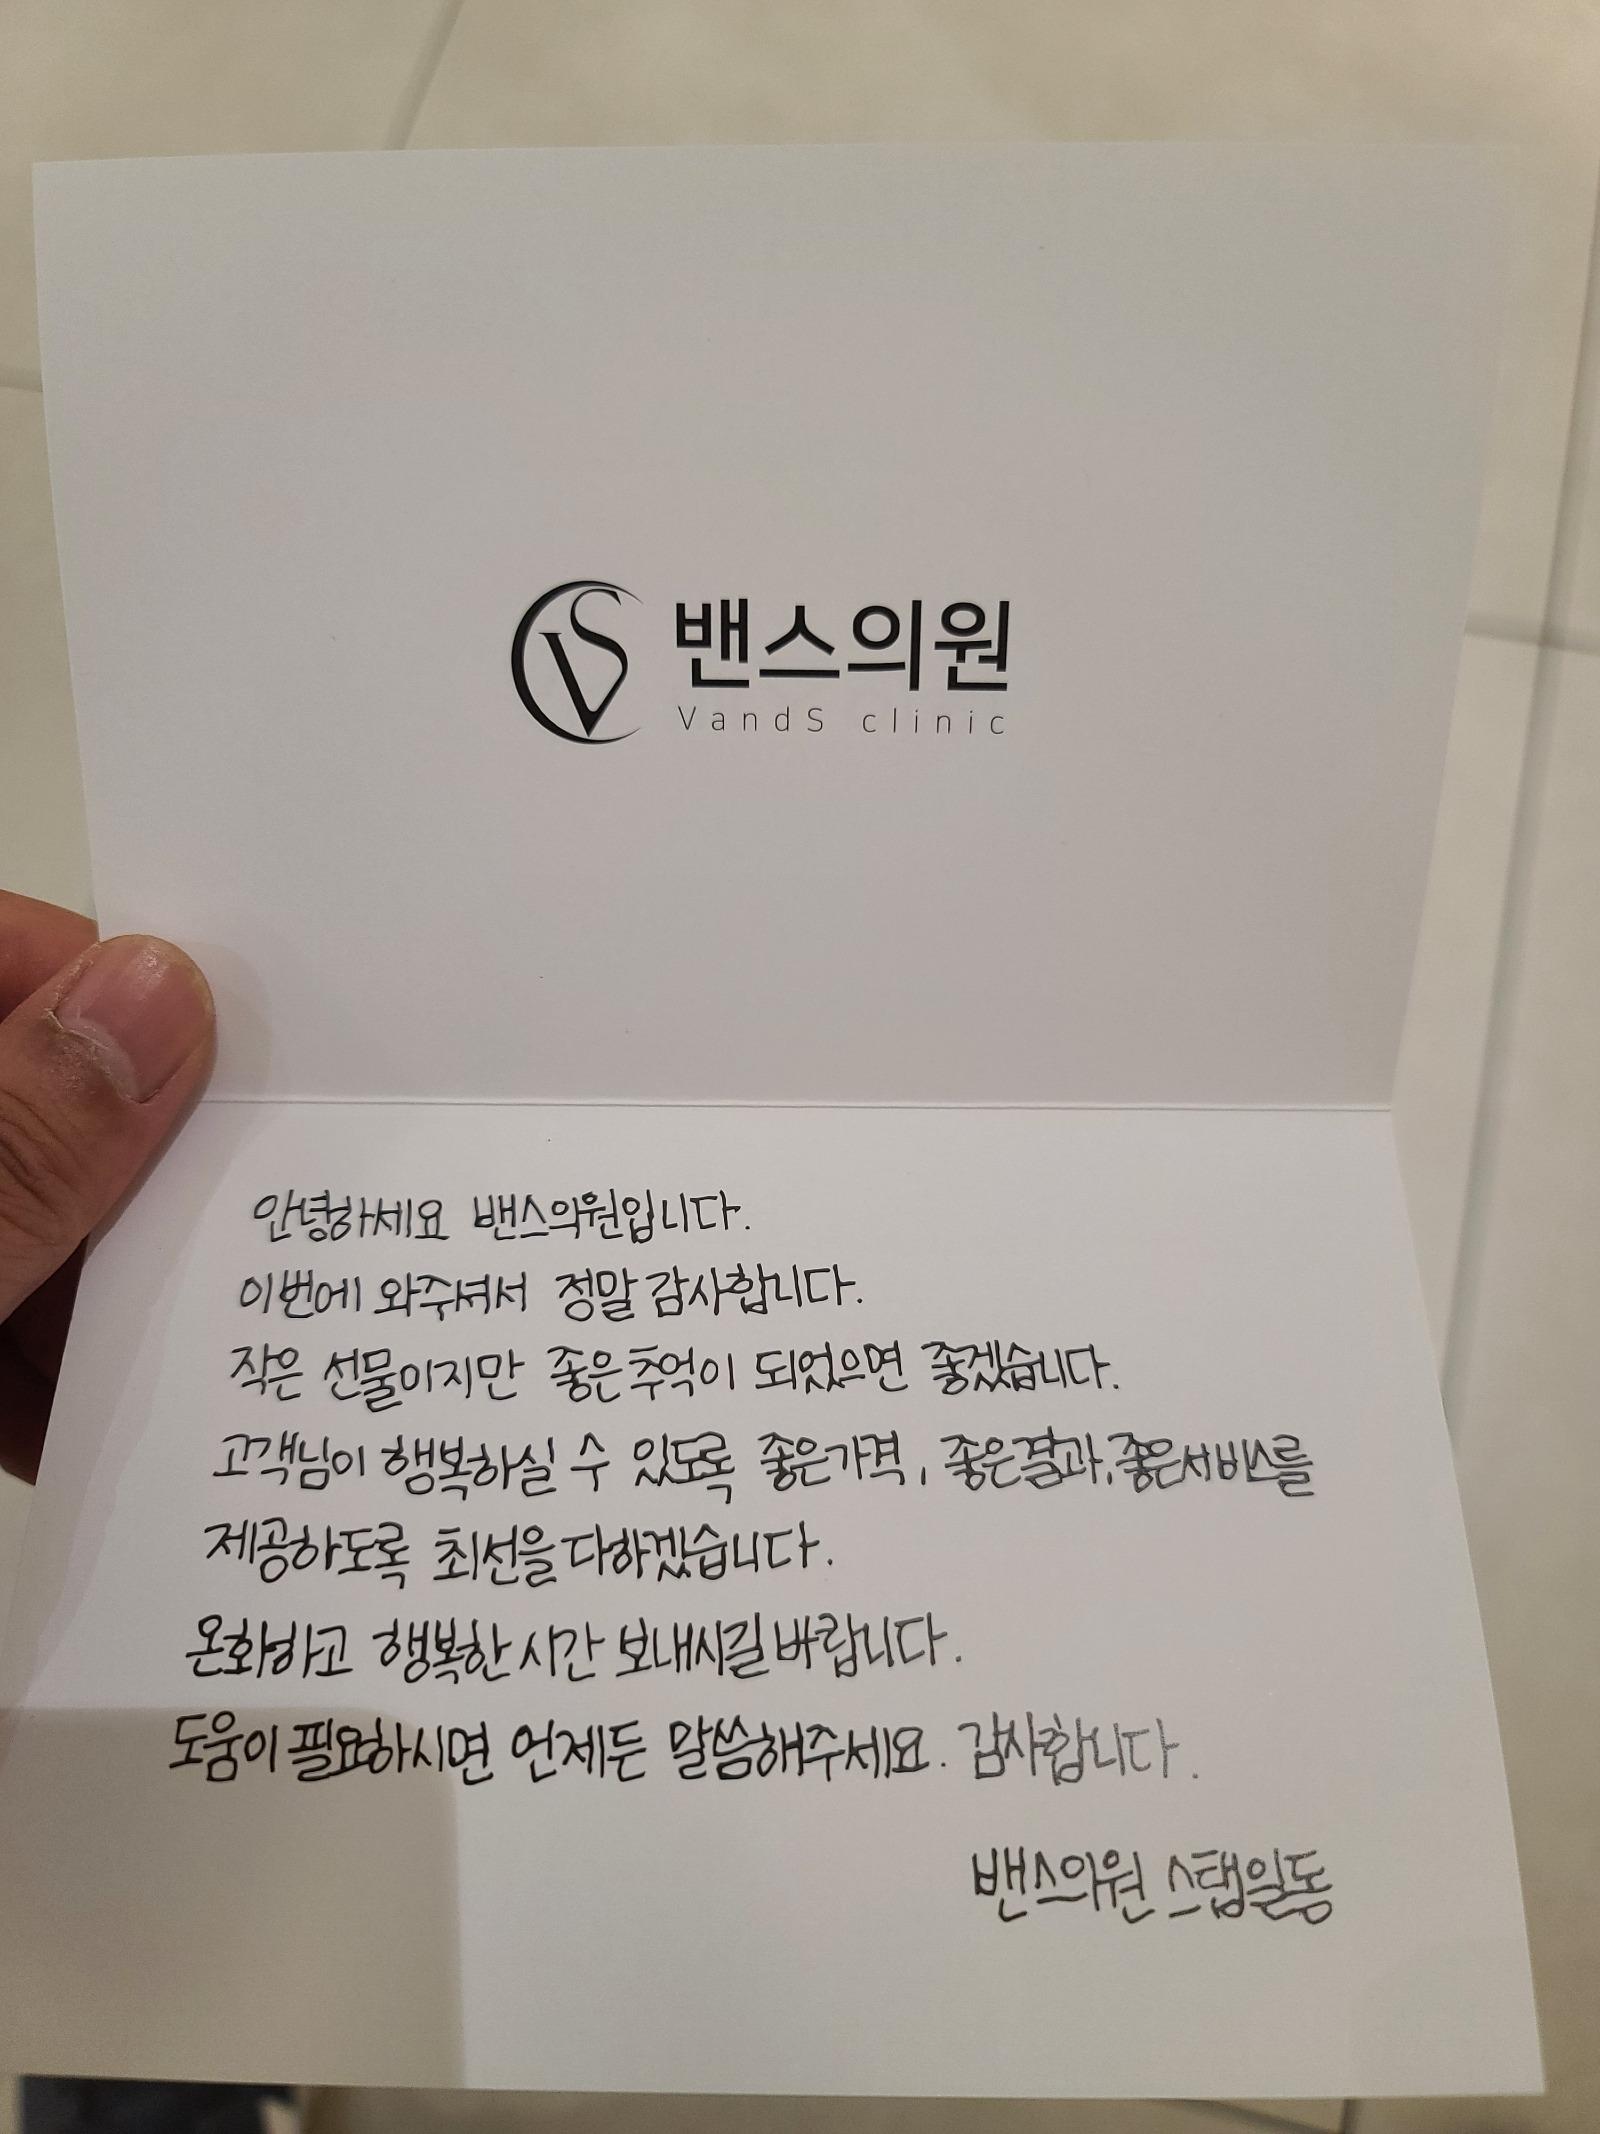 밴스의원
VandS clinic
안녕하세요 밴스의원입니다.
이번에 와주셔서 정말 감사합니다.
작은 선물이지만 좋은추억이 되었으면 좋겠습니다.
고객님이 행복하실 수 있도록 좋은가격, 좋은결과, 좋은서비스를
제공하도록 최선을다하겠습니다.
온화하고 행복한 시간 보내시길 바랍니다.
도움이 필요하시면 언제든 말씀해주세요. 감사합니다.
밴스의원 스탭일동